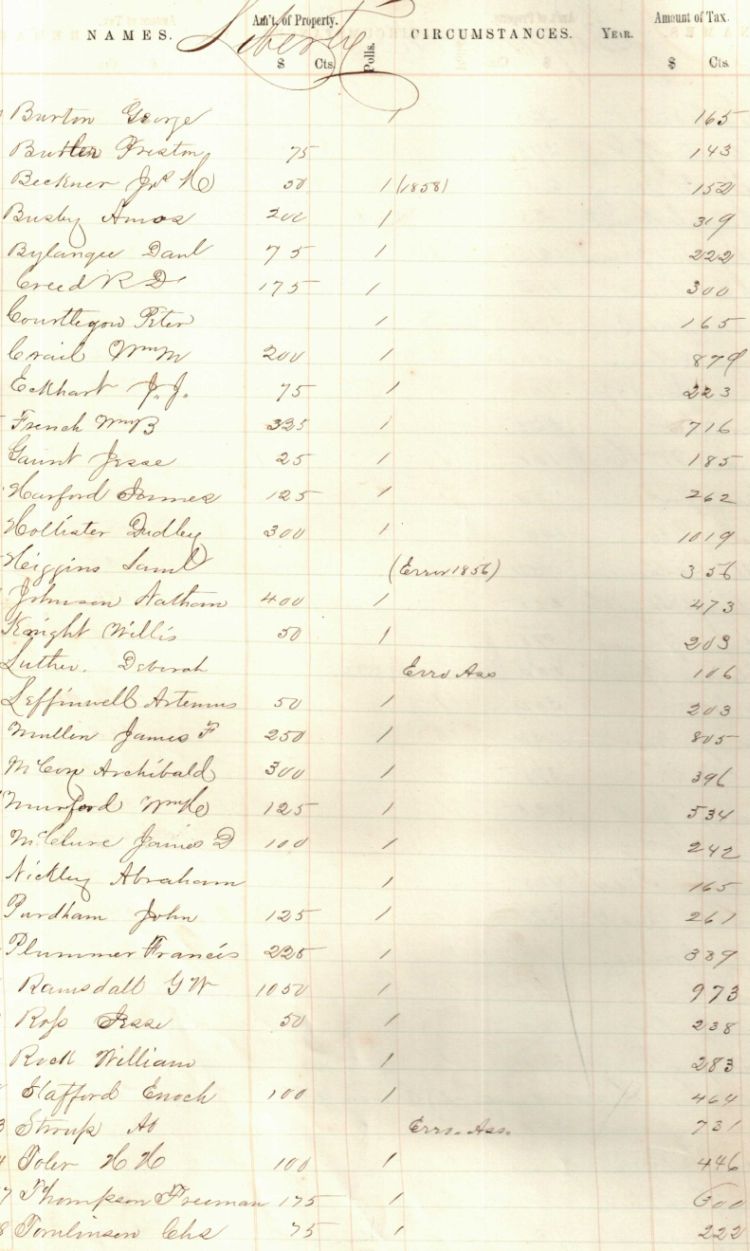 Liberty
NAMES. Am't. of Property. $ Cts. Polls. CIRCUMSTANCES. YEAR. Amount of Tax. $ Cts.
Burton George 1 165
Butler Preston 75 143
Beckner Jno H 50 1 (1858) 152
Busby Amos 200 1 319
Bylangee Danl 75 1 222
Creed R D 175 1 300
Courtlegou Peter 1 165
Crail Wm M 200 1 879
Eckhart J. J. 75 1 223
French Wm B 325 1 716
Gaunt Jesse 25 1 185
Harford James 125 1 262
Hollister Dudley 300 1 1019
Higgins Saml (Error 1856) 356
Johnson Nathan 400 1 473
Knight Willis 50 1 203
Luther. Deborah Erro Ass 106
Leffinwell Artemus 50 1 203
Mullen James F 250 1 805
McCoy Archibald 300 1 396
Munford Wm H 125 1 534
McClure James D 100 1 242
Nickley Abraham 1 165
Purdham John 125 1 261
Plummer Francis 225 1 339
Ramsdall G W 1050 1 973
Ross Jesse 50 1 238
Rock William 1 283
Stafford Enoch 100 1 464
Stroup Erro. Ass. 731
Toler H H 100 1 446
Thompson Freeman 175 1 600
Tomlinson Chs 75 1 222